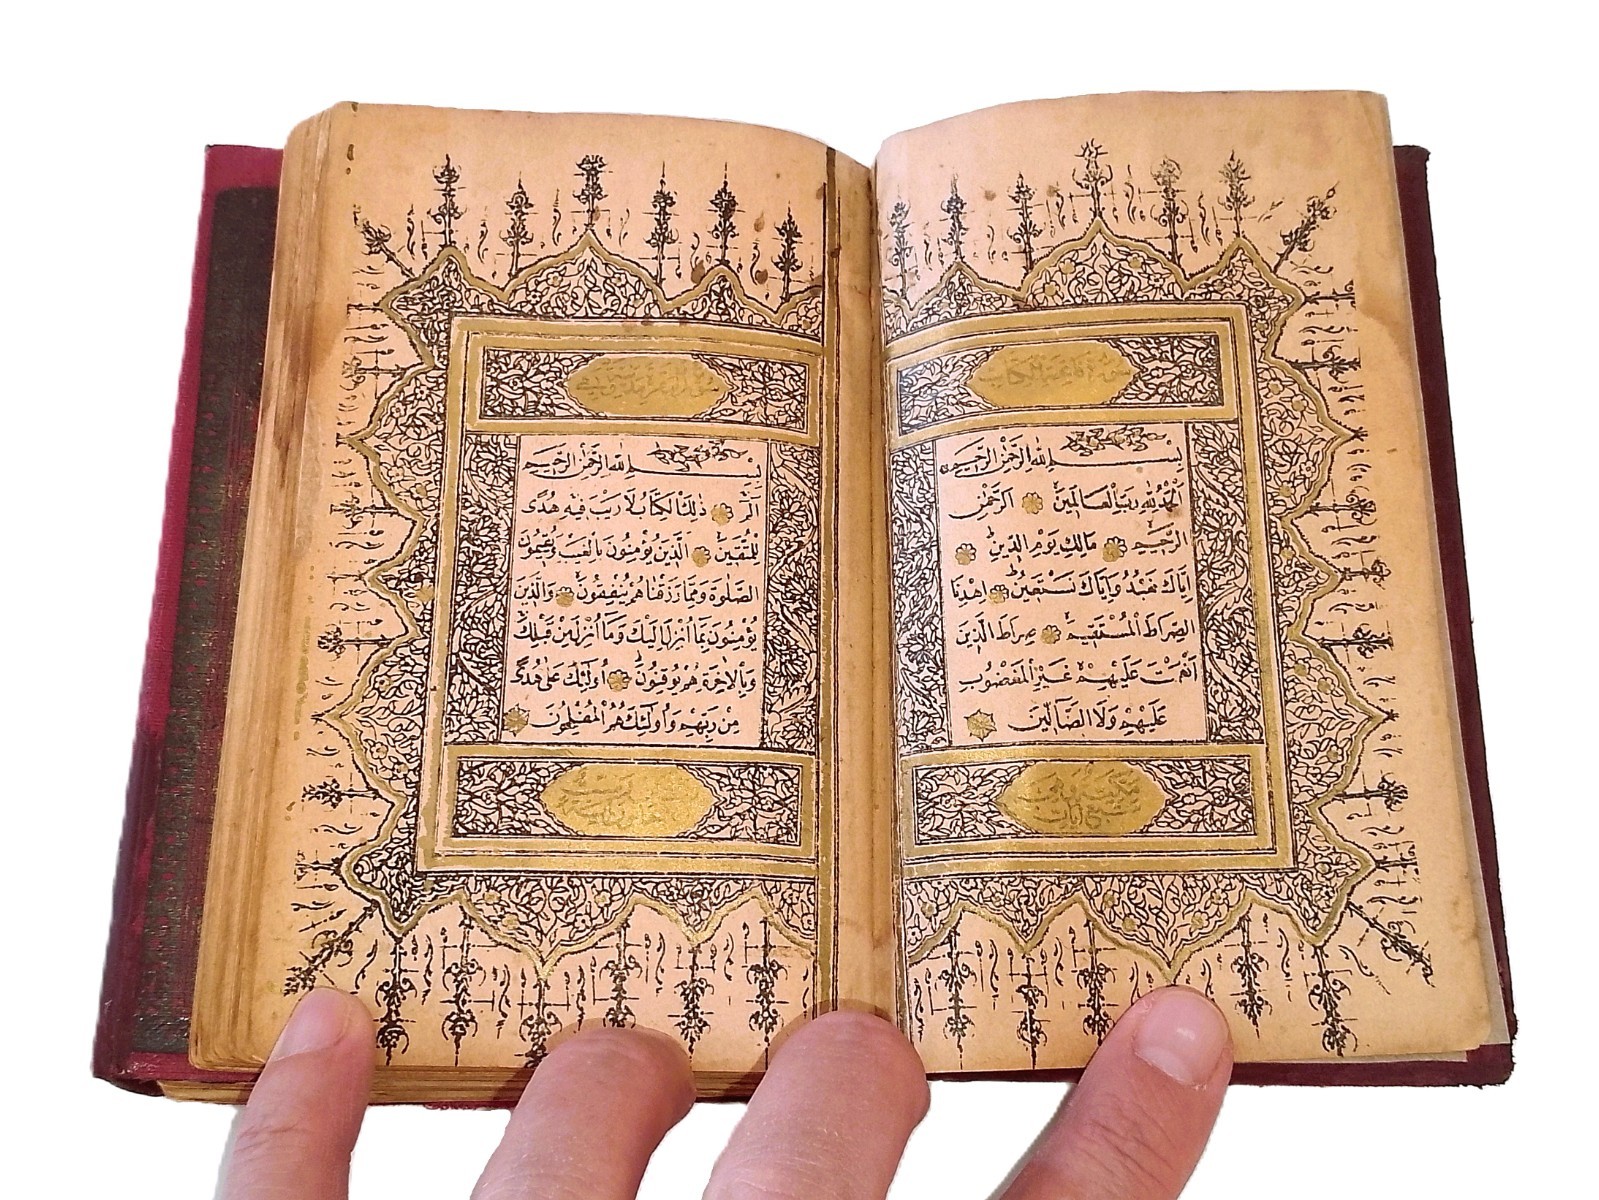 سورة فاتحة الكتاب
بسم الله الرحمن الرحيم
اَلْحَمْدُ لِلّٰهِ رَبِّ الْعَالَمِينَ اَلرَّحْمٰنِ
الرَّحِيمِ مَالِكِ يَوْمِ الدِّينِ
اِيَّاكَ نَعْبُدُ وَاِيَّاكَ نَسْتَعِينُ اِهْدِنَا
الصِّرَاطَ الْمُسْتَقِيمَ صِرَاطَ الَّذِينَ
اَنْعَمْتَ عَلَيْهِمْ غَيْرِ الْمَغْضُوبِ
عَلَيْهِمْ وَلَا الضَّٓالِّينَ
سبع آيات
سورة البقرة
بسم الله الرحمن الرحيم
الٓمٓ ذٰلِكَ الْكِتَابُ لَا رَيْبَ فِيهِ هُدًى
لِلْمُتَّقِينَ اَلَّذِينَ يُؤْمِنُونَ بِالْغَيْبِ وَيُقِيمُونَ
الصَّلٰوةَ وَمِمَّا رَزَقْنَاهُمْ يُنْفِقُونَ وَالَّذِينَ
يُؤْمِنُونَ بِمَٓا اُنْزِلَ اِلَيْكَ وَمَٓا اُنْزِلَ مِنْ قَبْلِكَ
وَبِالْاٰخِرَةِ هُمْ يُوقِنُونَ اُولٰٓئِكَ عَلٰى هُدًى
مِنْ رَبِّهِمْ وَاُولٰٓئِكَ هُمُ الْمُفْلِحُونَ